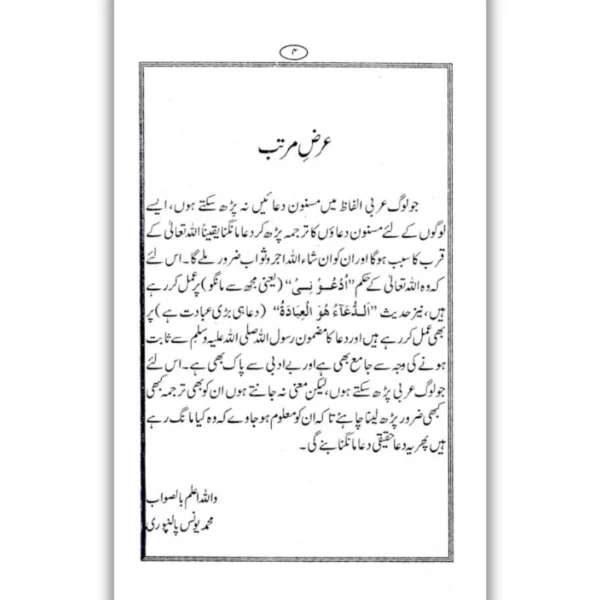 ۴
عرضِ مرتب
جو لوگ عربی الفاظ میں مسنون دعائیں نہ پڑھ سکتے ہوں، ایسے
لوگوں کے لئے مسنون دعاؤں کا ترجمہ پڑھ کر دعا مانگنا یقیناً اللہ تعالیٰ کے
قرب کا سبب ہوگا اور ان کو ان شاء اللہ اجر و ثواب ضرور ملے گا۔ اس لئے
کہ وہ اللہ تعالیٰ کے حکم ”اُدْعُوْنِیْ“ (یعنی مجھ سے مانگو) پر عمل کر رہے
ہیں، نیز حدیث ”اَلدُّعَآءُ هُوَ الْعِبَادَةُ“ (دعا ہی بڑی عبادت ہے) پر
بھی عمل کر رہے ہیں اور دعا کا مضمون رسول اللہ صلی اللہ علیہ وسلم سے ثابت
ہونے کی وجہ سے جامع بھی ہے اور بے ادبی سے پاک بھی ہے۔ اس لئے
جو لوگ عربی پڑھ سکتے ہوں، لیکن معنی نہ جانتے ہوں ان کو بھی ترجمہ بھی
کبھی ضرور پڑھ لینا چاہئے تا کہ ان کو معلوم ہو جاوے کہ وہ کیا مانگ رہے
ہیں پھر یہ دعا حقیقی دعا مانگنا بنے گی۔
واللہ اعلم بالصواب
محمد یونس پالنپوری